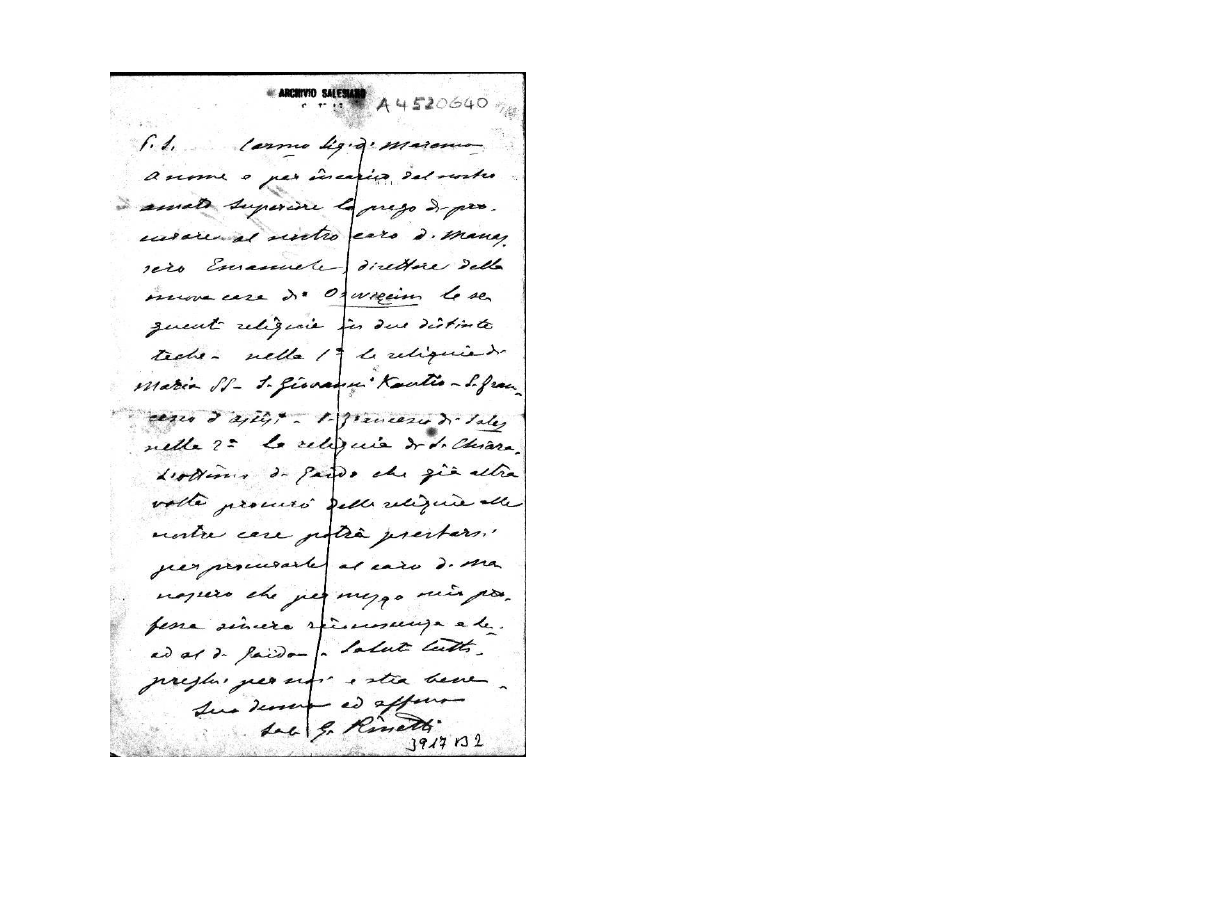 ARCHIVIO SALESIANO
A4520640
P.S. Carmo Sig. D. Marenco
A nome e per incarico del nostro
amato Superiore la prego di pro-
curare al nostro caro D. Manas
sero Emanuele, direttore della
nuova casa di Oswięcim le se
guenti reliquie in due distinte
teche - nella 1ª le reliquie di
Maria SS - S. Giovanni Kantio - S. Fran-
cesco d'Assisi - S. Francesco di Sales
nella 2ª le reliquie di S. Chiara.
L'ottimo D. Gaido che già altra
volta procurò delle reliquie alle
nostre case potrà prestarsi
per procurarle al caro D. Ma
nassero che per mezzo mio pro-
fessa sincera riconoscenza a Lei
ed al D. Gaido - Saluti tutti,
preghi per noi e stia bene -
Suo devmo ed affmo
Sac. G. Rinetti
3917 B2